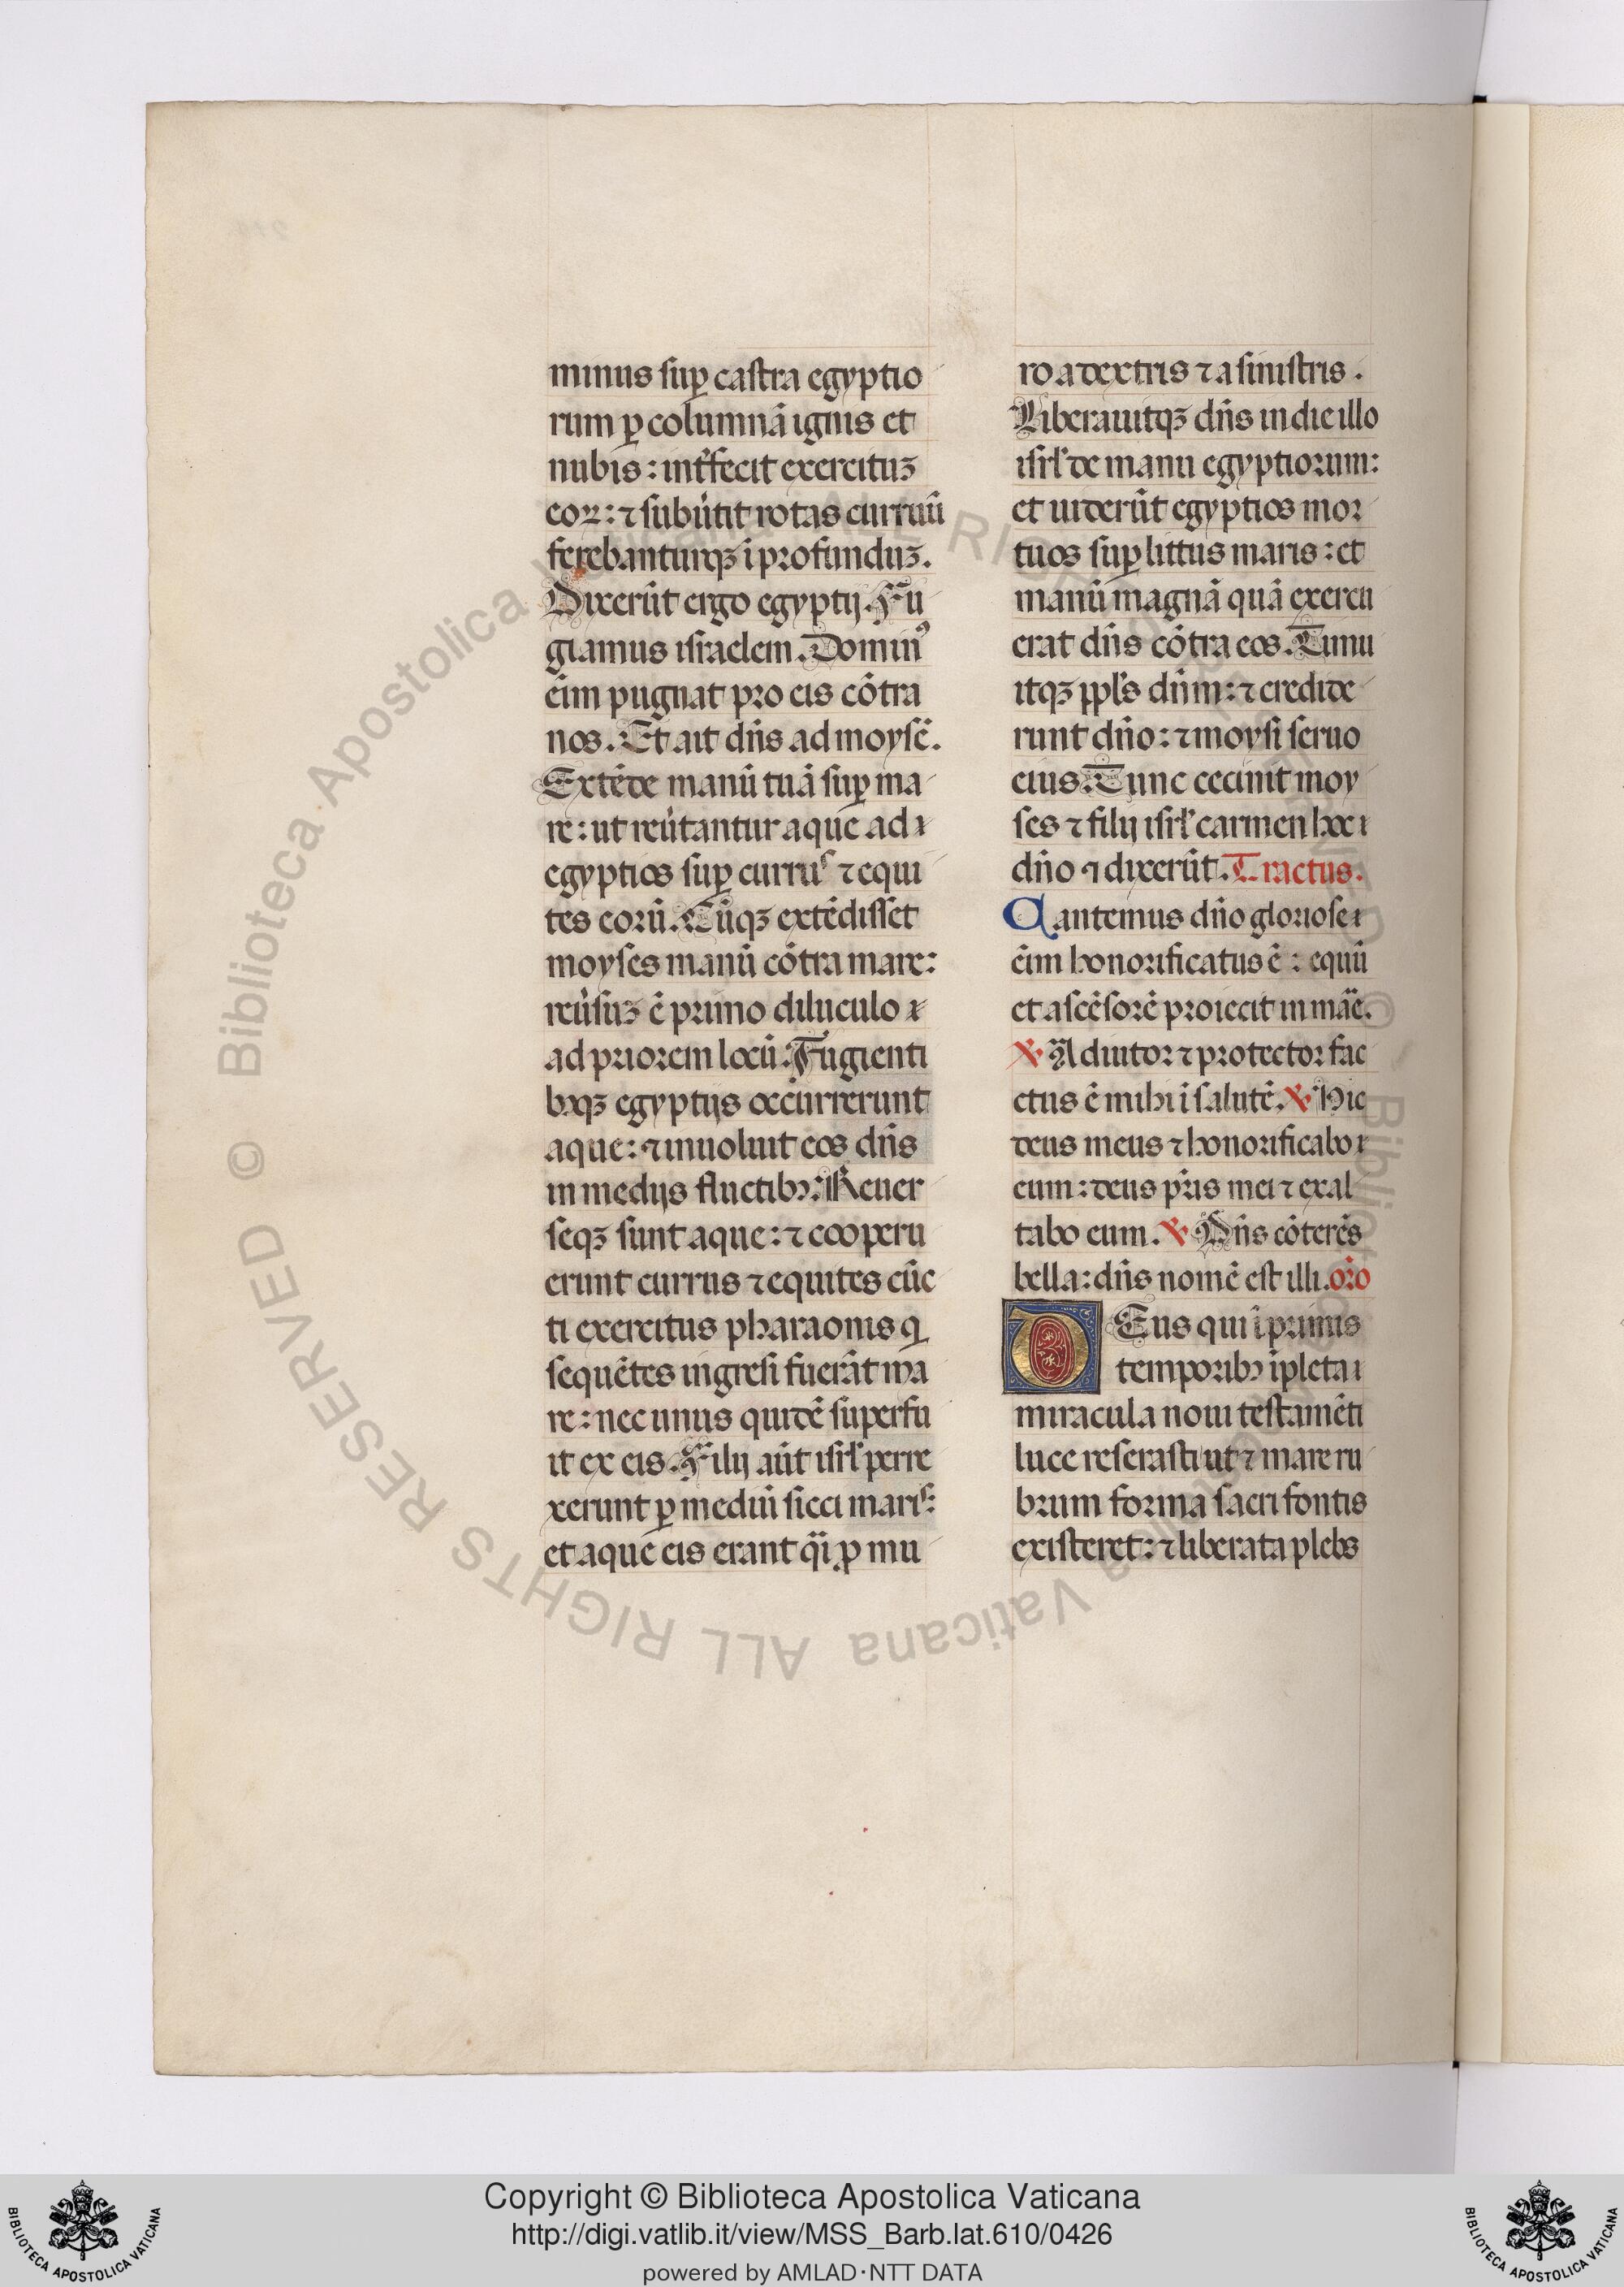 minus sup̱ castra egyptio
rum ꝑ columnã ignis et
nubis: int̾fecit exercituꝫ
eoꝝ: ⁊ subũtit rotas curruũ
ferebanturqꝫ ĩ profunduꝫ.
Dixerũt ergo egyptij. Fu
giamus israelem. Dominꝰ
eim̃ pugnat pro eis cõtra
nos. Et ait dñs ad moysẽ.
Extẽde manũ tuã sup̱ ma
re: ut reũtantur aque ad
egyptios sup̱ currus ⁊ equi
tes eorũ. Cũqꝫ extẽdisset
moyses manũ cõtra mare:
reũsuꝫ ẽ primo diluculo
ad priorem locũ. Fugienti
bꝫqꝫ egyptijs occurrerunt
aque: ⁊ inuoluit eos dñs
in medijs fluctibꝫ. Reuer
seqꝫ sunt aque: ⁊ cooperu
erunt currus ⁊ equites cũc
ti exercitus pharaonis q̱
sequẽtes ingresi fuerãt ma
re: nec unus quidẽ superfu
it ex eis. Filij aũt isrl̃ perre
xerunt ꝑ mediũ sicci maris:
et aque eis erant q̃i ꝓ mu
ro a dextris ⁊ a sinistris.
Liberauitqꝫ dñs in die illo
isrl̃ de manu egyptiorum:
et uiderũt egyptios mor
tuos sup̱ littus maris: et
manũ magnã quã exercu
erat dñs cõtra eos. Timu
itqꝫ ppl̃s dñm: ⁊ credide
runt dño: ⁊ moysi seruo
eius. Tunc cecinit moy
ses ⁊ filij isrl̃ carmen hoc
dño ⁊ dixerũt. Tractus.
Cantemus dño gloriose
eim̃ honorificatus ẽ: equũ
et ascẽsorẽ proiecit in mãe.
℣ Adiutor ⁊ protector fac
ctus ẽ mihi ĩ salutẽ. ℣ Hic
deus meus ⁊ honorificabo
eum: deus pr̃is mei ⁊ exal
tabo eum. ℣ Dñs cõterẽs
bella: dñs nomẽ est illi. or̃o
DEus qui ĩ primis
temporibꝫ ĩpleta
miracula noui testamẽti
luce reserasti ut ⁊ mare ru
brum forma sacri fontis
existeret: ⁊ liberata plebs
© Biblioteca Apostolica Vaticana ALL RIGHTS RESERVED
Copyright © Biblioteca Apostolica Vaticana
http://digi.vatlib.it/view/MSS_Barb.lat.610/0426
powered by AMLAD·NTT DATA
BIBLIOTECA APOSTOLICA VATICANA
BIBLIOTECA APOSTOLICA VATICANA